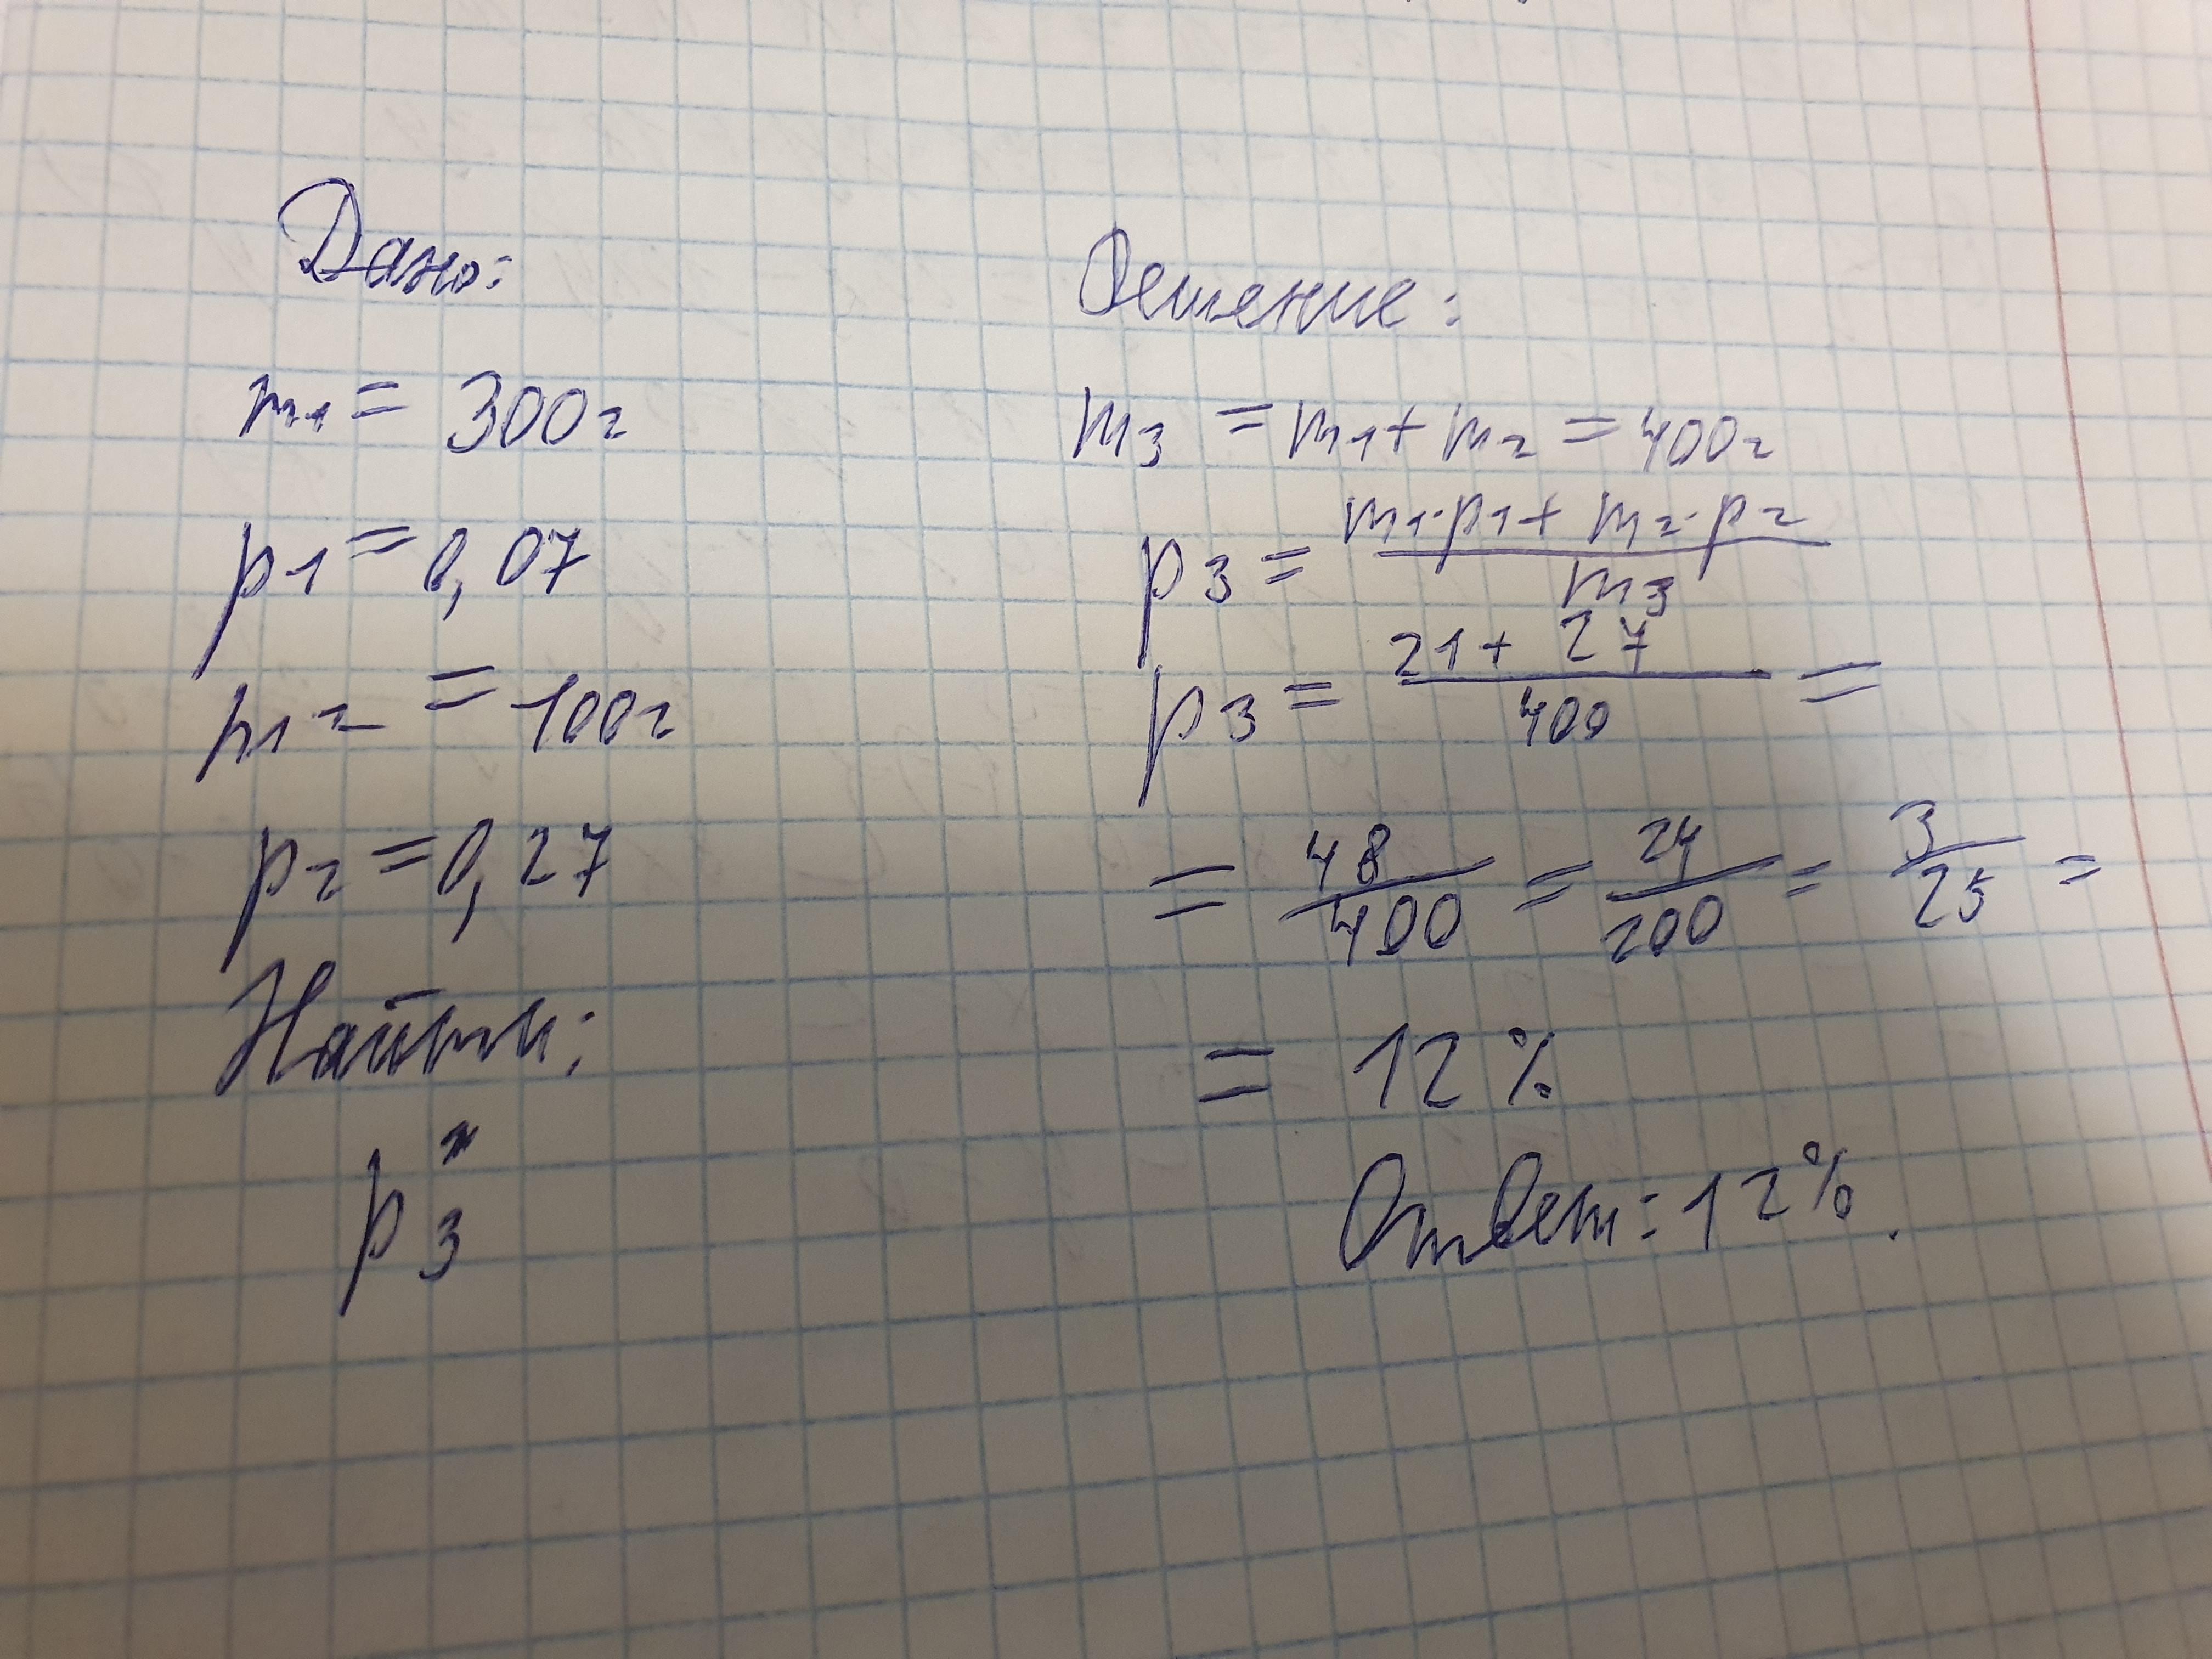 Дано:
m1 = 300г
p1 = 0,07
m2 = 100г
p2 = 0,27
Найти:
p3
Решение:
m3 = m1 + m2 = 400г
p3 = (m1·p1 + m2·p2) / m3
p3 = (21 + 27) / 400 =
= 48/400 = 24/200 = 3/25 =
= 12 %
Ответ: 12%.